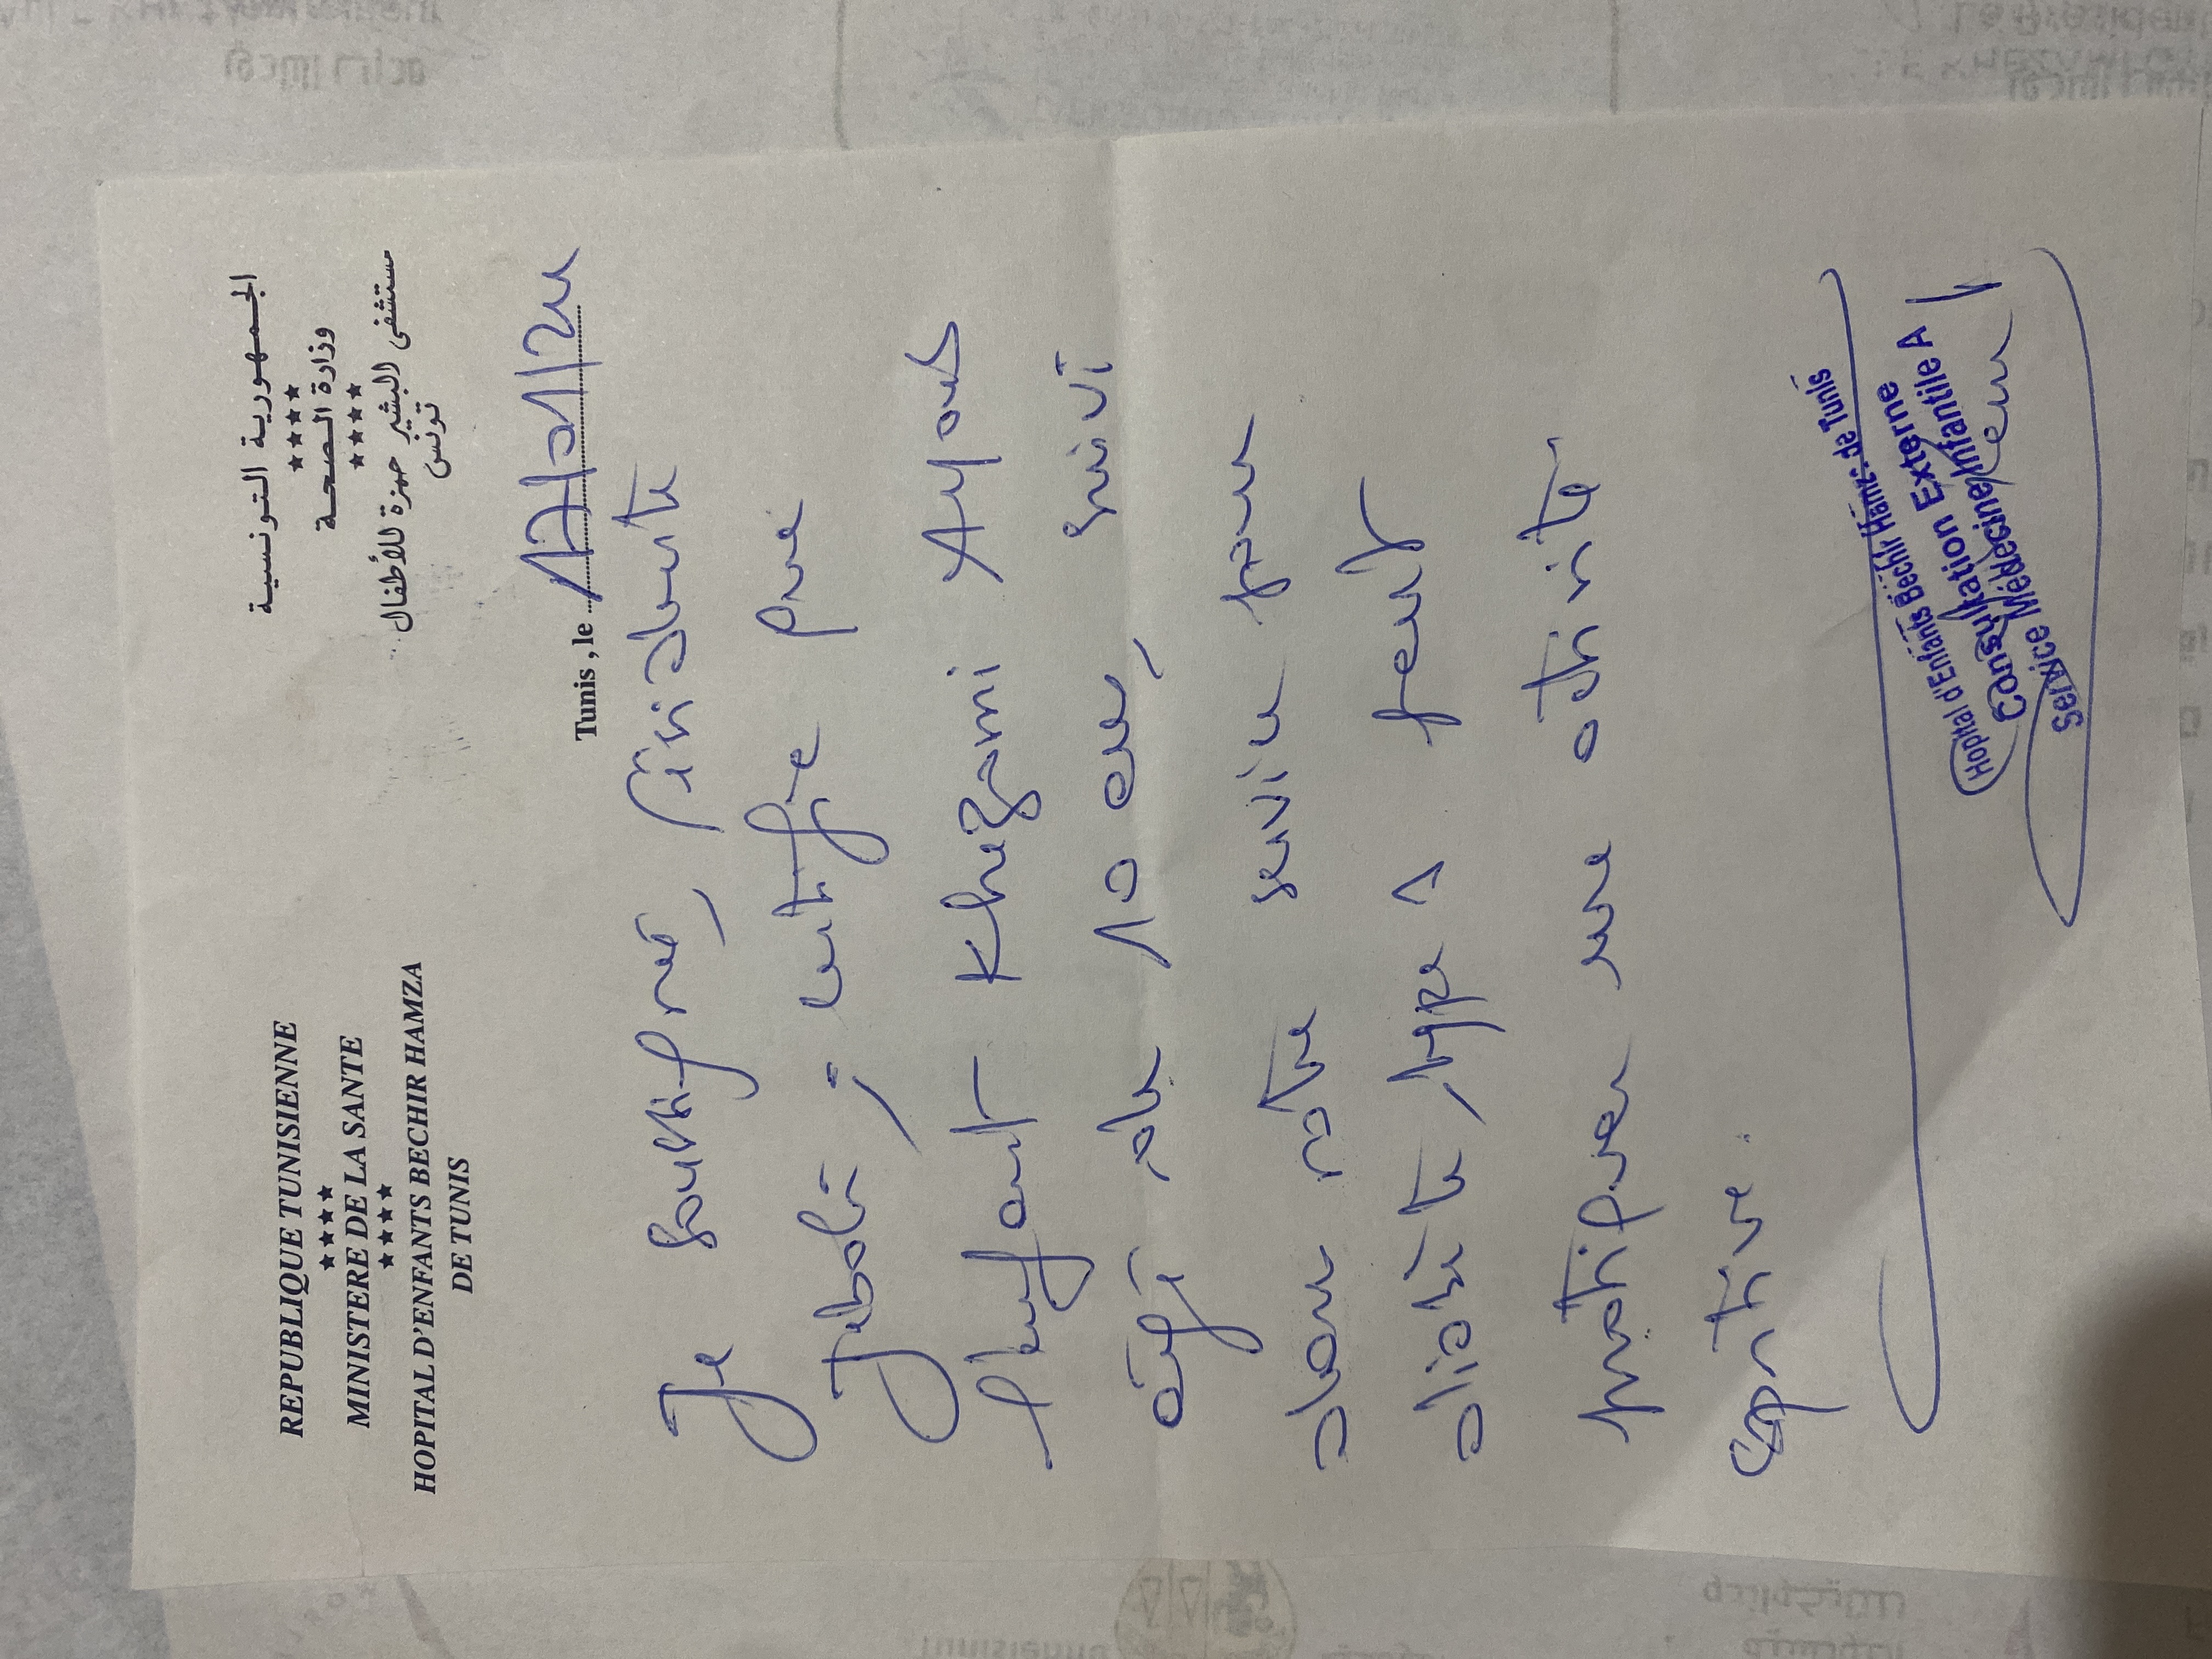 REPUBLIQUE TUNISIENNE
★★★★
MINISTERE DE LA SANTE
★★★★
HOPITAL D'ENFANTS BECHIR HAMZA
DE TUNIS
الجمهورية التونسية
★★★★
وزارة الصحة
★★★★
مستشفى البشير حمزة للأطفال
تونس
Tunis, le
Je soussigné,
certifie que
l'enfant Khezami Ayoub
âgé de 10 ans, suivi
dans notre service pour
diabète type 1 peut
pratiquer une activité
sportive.
Hopital d'Enfants Béchir Hamza de Tunis
Consultation Externe
Service Médecine Infantile A